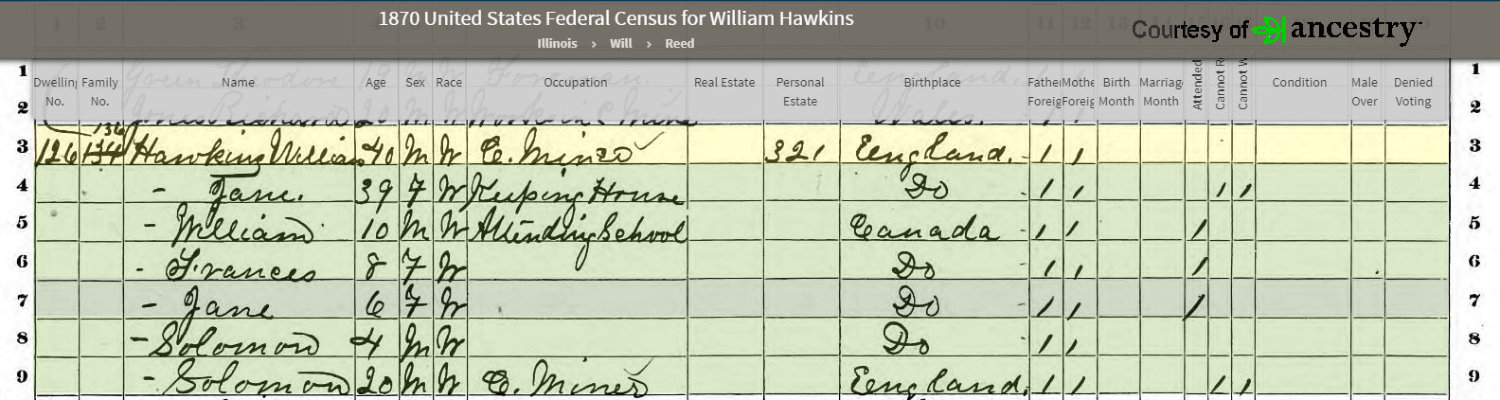 1870 United States Federal Census for William Hawkins
Illinois > Will > Reed
Courtesy of ancestry
1 2 3 10 11 12 13
Dwelling No. Family No. Name Age Sex Race Occupation Real Estate Personal Estate Birthplace Father Foreig Mothe Foreig Birth Month Marriag Month Attended Cannot R Cannot W Condition Male Over Denied Voting
1 Green Theodore 19 M W England 1
2 Richard 20 M W Works in C Mine Wales. 2
136
3 126 134 Hawkins William 40 M W C. Miner 321 England. 1 1 3
4 - Jane. 39 F W Keeping House Do 1 1 1 1 4
5 - William 10 M W Attending School Canada 1 1 1 5
6 - Frances 8 F W Do 1 1 1 6
7 - Jane 6 F W Do 1 1 1 7
8 - Solomon 4 M W Do 1 1 8
9 - Solomon 20 M W C. Miner England. 1 1 1 1 9